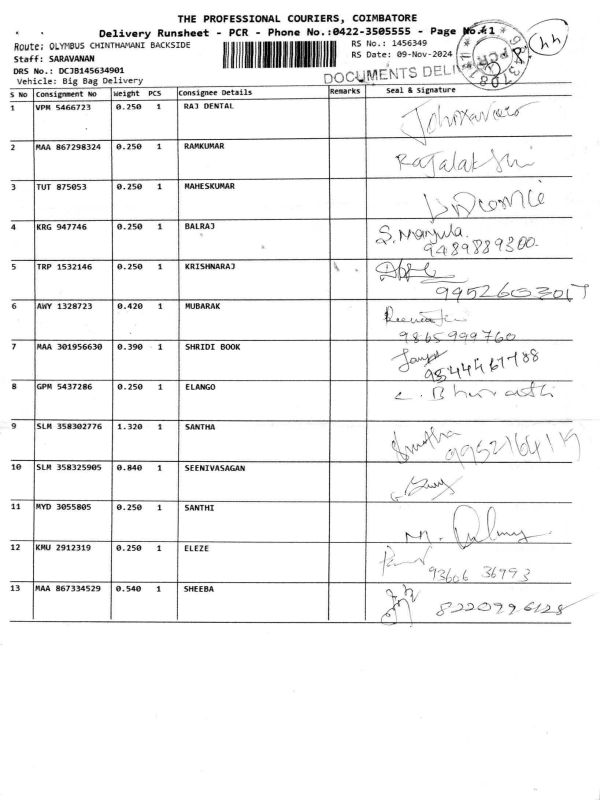 THE PROFESSIONAL COURIERS, COIMBATORE
Delivery Runsheet - PCR - Phone No.:0422-3505555 - Page No.:1
44
Route: OLYMBUS CHINTHAMANI BACKSIDE
RS No.: 1456349
Staff: SARAVANAN
RS Date: 09-Nov-2024
DRS No.: DCJB145634901
Vehicle: Big Bag Delivery
DOCUMENTS DELIV
S No Consignment No Weight PCS Consignee Details Remarks Seal & Signature
1 VPM 5466723 0.250 1 RAJ DENTAL
2 MAA 867298324 0.250 1 RAMKUMAR Rajalakshmi
3 TUT 875053 0.250 1 MAHESKUMAR
4 KRG 947746 0.250 1 BALRAJ S. Manjula.
9489889300
5 TRP 1532146 0.250 1 KRISHNARAJ
9952603017
6 AWY 1328723 0.420 1 MUBARAK
9865999760
7 MAA 301956630 0.390 1 SHRIDI BOOK
9544467788
8 GPM 5437286 0.250 1 ELANGO
9 SLM 358302776 1.320 1 SANTHA
10 SLM 358325905 0.840 1 SEENIVASAGAN
11 MYD 3055805 0.250 1 SANTHI
12 KMU 2912319 0.250 1 ELEZE
93606 36993
13 MAA 867334529 0.540 1 SHEEBA 8220996128